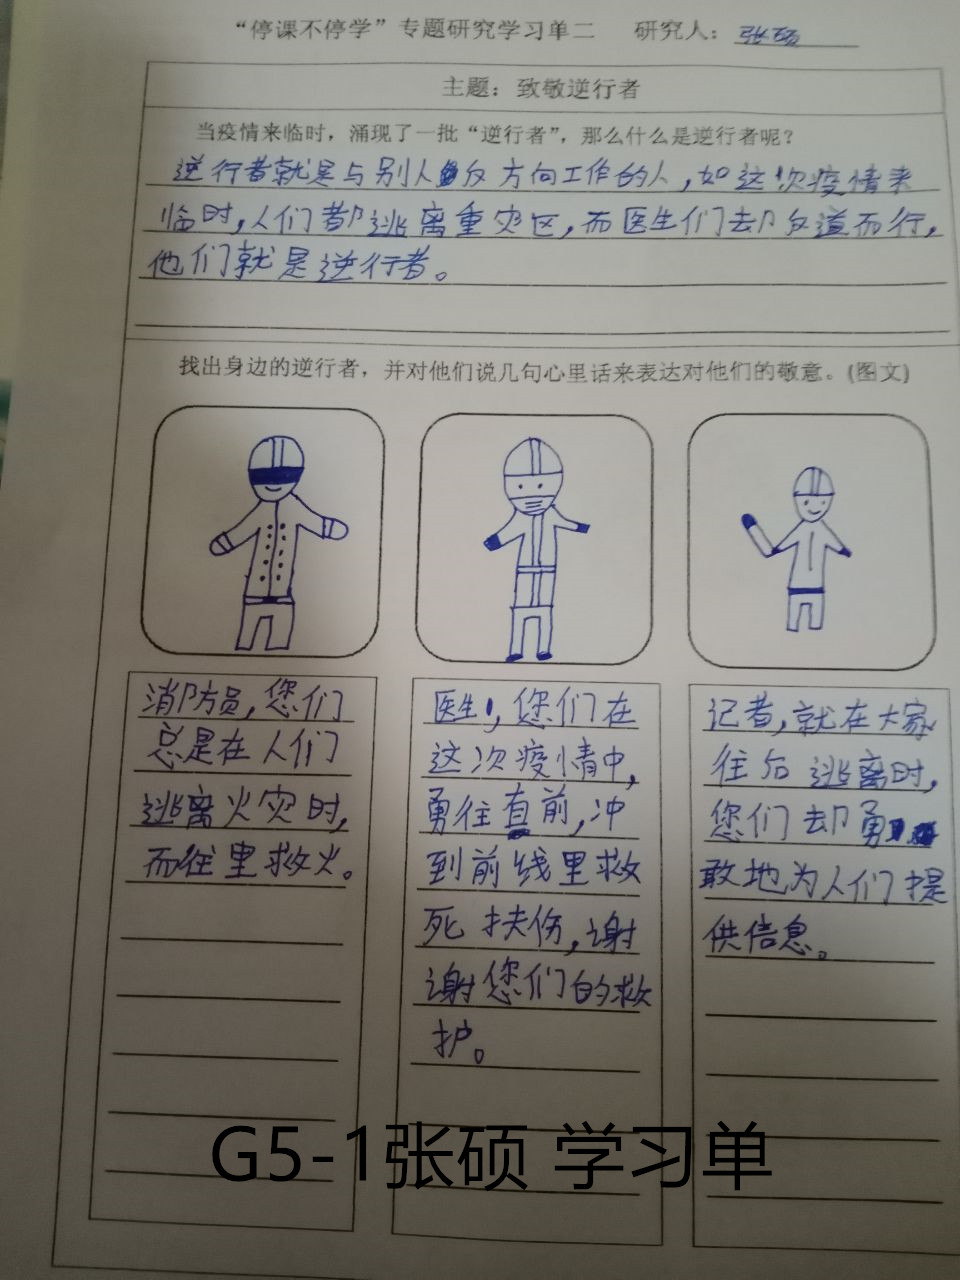 “停课不停学”专题研究学习单二 研究人：张硕
主题：致敬逆行者
当疫情来临时，涌现了一批“逆行者”，那么什么是逆行者呢？
逆行者就是与别人反方向工作的人，如这次疫情来
临时，人们都逃离重灾区，而医生们却反道而行，
他们就是逆行者。
找出身边的逆行者，并对他们说几句心里话来表达对他们的敬意。(图文)
消防员，您们
总是在人们
逃离火灾时，
而往里救火。
医生，您们在
这次疫情中，
勇往直前，冲
到前线里救
死扶伤，谢
谢您们的救
护。
记者，就在大家
往后逃离时，
您们却勇
敢地为人们提
供信息。
G5-1张硕 学习单